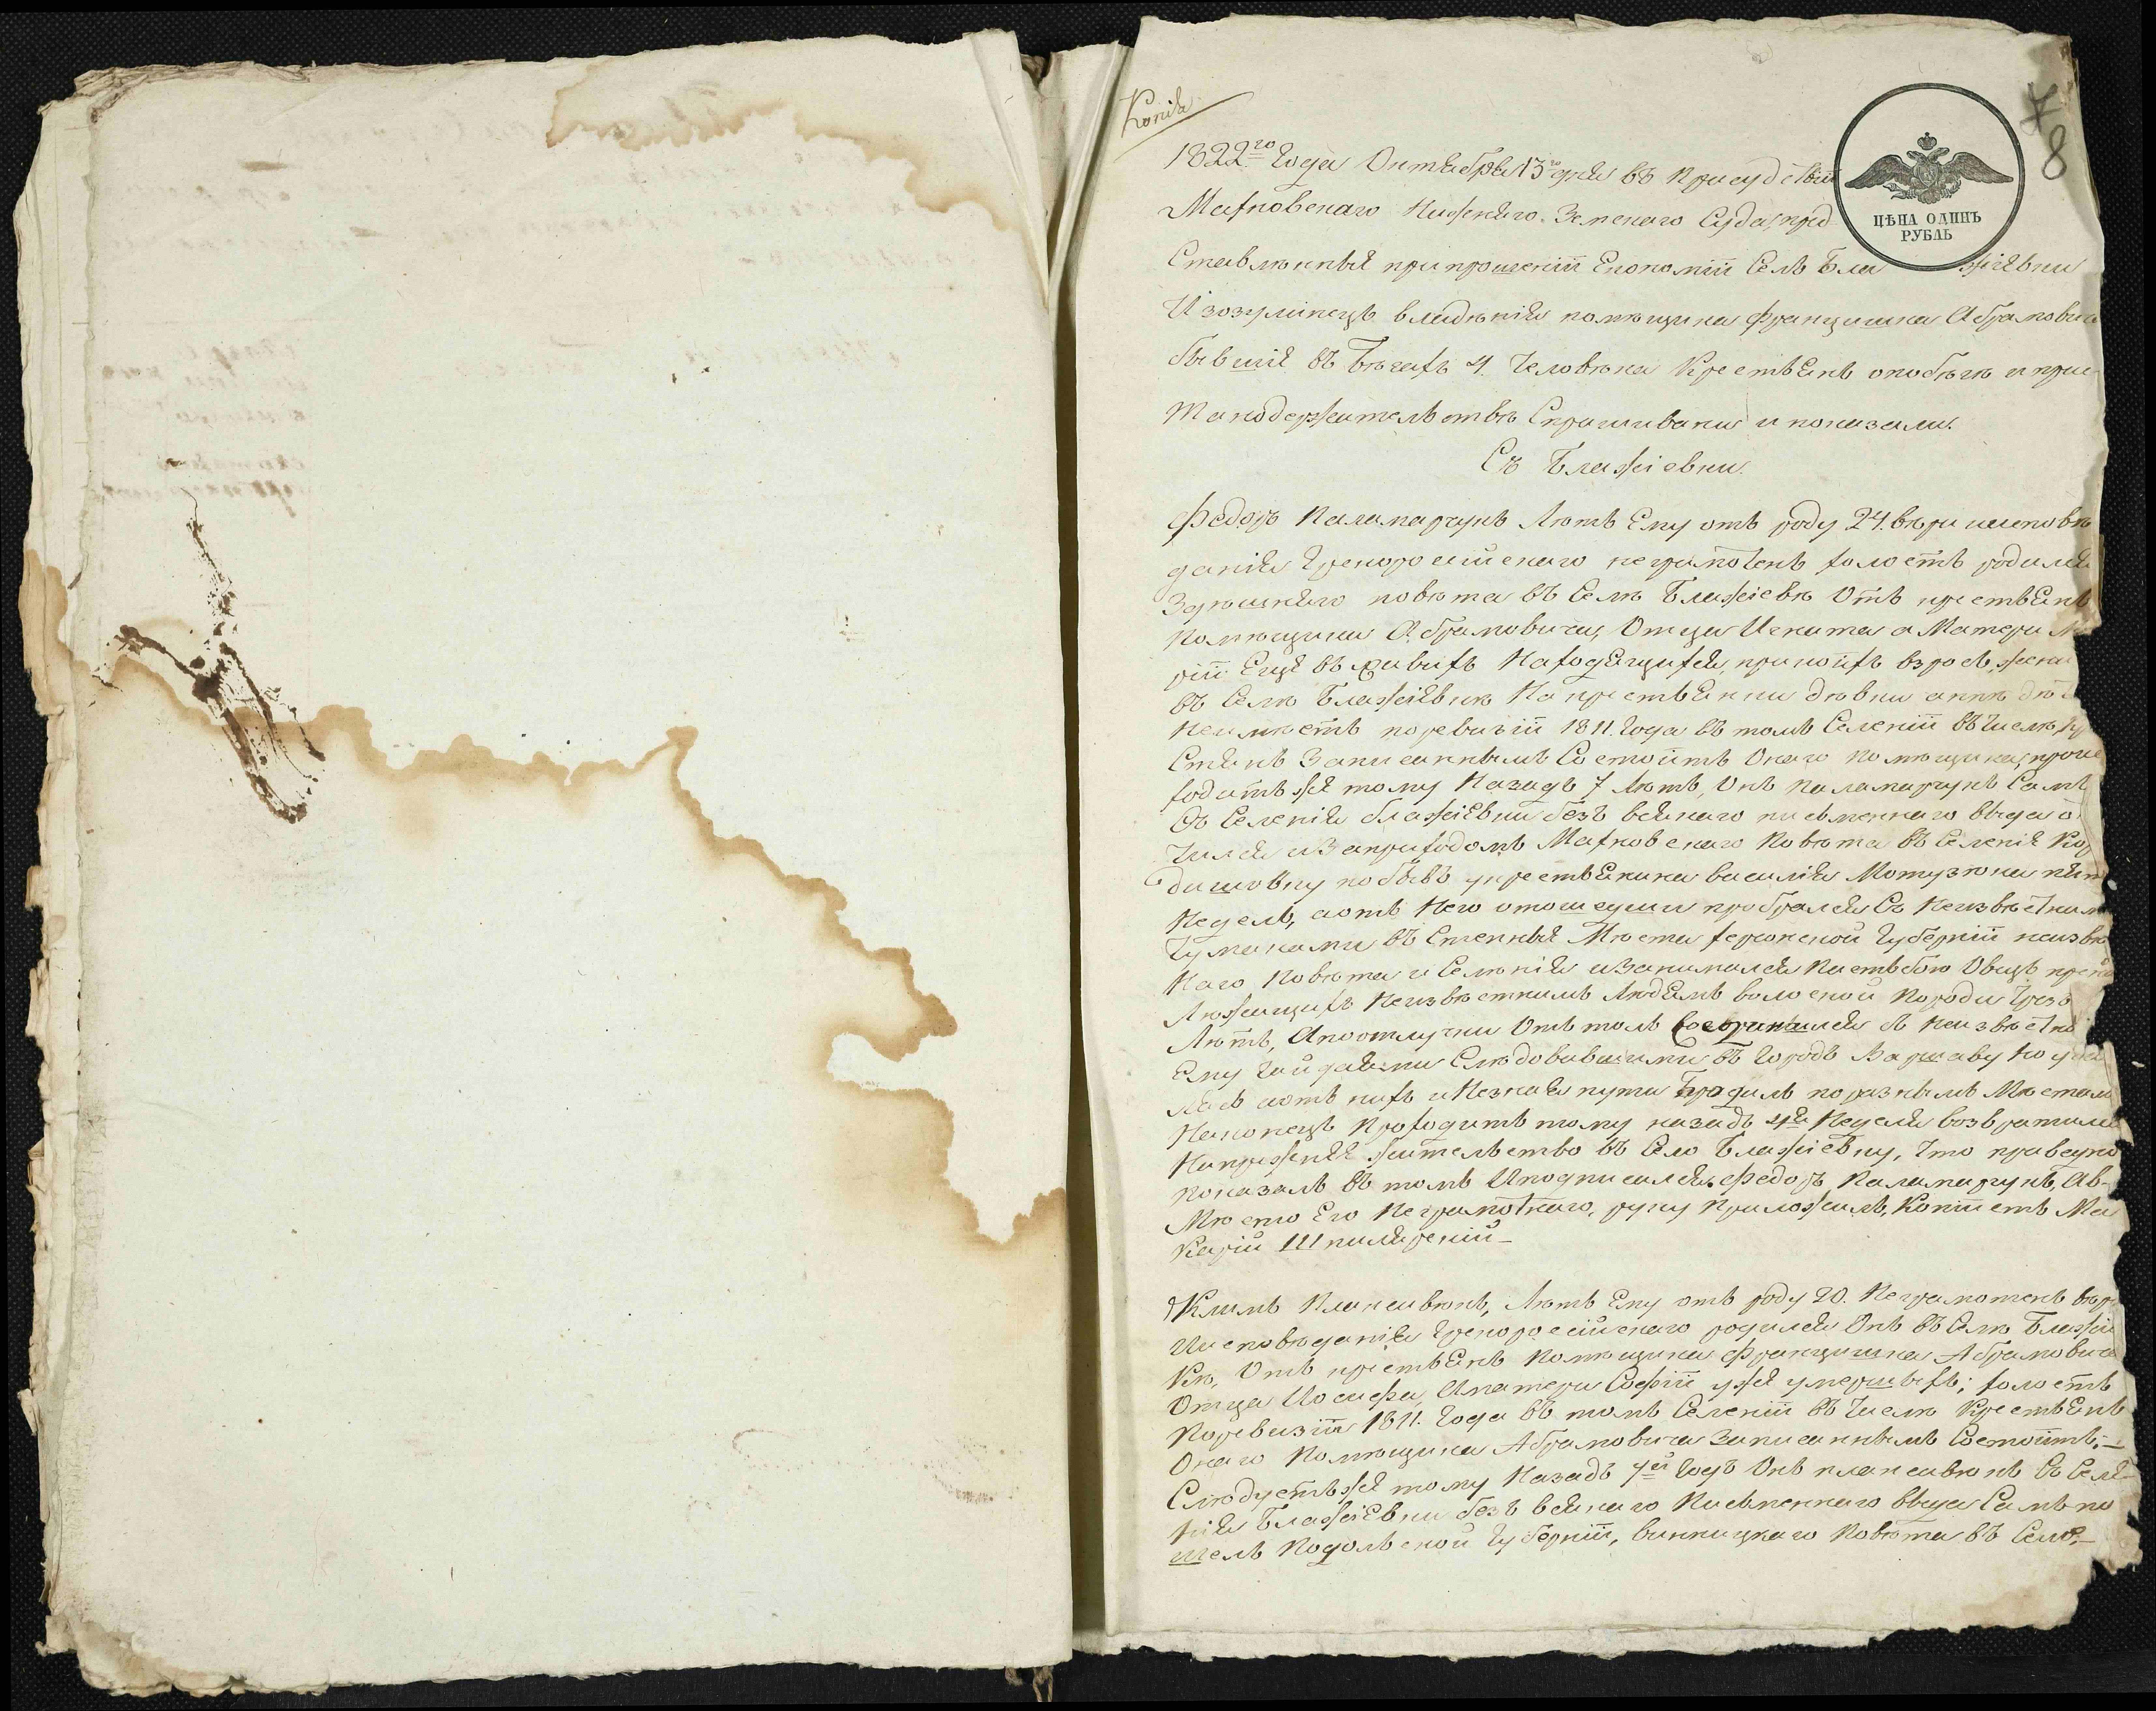 Копія
7
8
ЦѢНА ОДИНЪ
РУБЛЬ
1822го Года Октября 13го дня въ присудствіи
Махновскаго Нижняго Земскаго Суда, пред
Ставлѣнныя при прошеніи Економіи Селъ Бла жіевки
И зозулинецъ владѣнія помѣщика Францишка Абрамовича
бывшія въ Бѣгахъ 4. Человѣка Крестьянъ опобѣгѣ и при-
Танодержительствѣ Спрашиваны и показали.
Съ Блажіевки.
Федоръ Паламарчукъ Лѣтъ Ему отъ роду 24. вѣри исповѣ
данія Грекороссійскаго неграмотенъ холостъ родился
помѣщика Абрамовича, Отца Игната а Матери М
ріи Еще въ живыхъ Находящихся, при коихъ взросъ, жени
въ Селѣ Блажіевкѣ На крестьянки дѣвки аннѣ дѣт
Неимѣетъ поревизіи 1811. Года въ томъ Селеніи въ числѣ кр
Стянъ Записаннымъ Состоитъ Онаго помѣщика, прои
ходитъ же тому Назадъ 7 Лѣтъ, Онъ паламарчукъ Самъ
Съ Селенія блажіевки безъ всякаго писменнаго вида о
чился изаприходомъ Махновскаго Повѣта въ Селеніе Ко
дишовку побывъ укрестьянина василія Мотузюка пят
Недель, аотъ Него отошедши пробрался Съ Неизвѣстним
Чумаками въ Степныя Мѣста херсонской Губерніи неизвѣ
Наго Повѣта и Селѣнія изанимался Пастьбою Овецъ при
Лежащихъ Неизвѣстнимъ Людямъ волоской породи Чрезъ
Лѣтъ, Апоотлучки Оттоль съ неизвѣстно
Ему Гайдаями Слѣдовавшими въ Городъ Варшаву но у
лся аотъ нихъ иНезная пути Бродилъ поразнымъ Мѣстамъ
Наконецъ Проходитъ тому назадъ 4я Неделя возвратился
Напрежняя жительство въ Село Блажіевку, что праведно
показалъ въ томъ Иподписался. Федоръ Паламарчукъ, Ав-
Мѣсто Его Неграмотнаго, руку приложилъ, Копіистъ Ма
Карій Шкиляренній –
Климъ Плаксивюкъ, Лѣтъ Ему отъ роду 20. Неграмотенъ вѣри
Исповѣданія Грекороссійскаго родился Онъ въ Селѣ Блажіе
Кѣ, Отъ крестьянъ Помѣщика Францишка Абрамовича
Отца Иосифа, Аматери Софіи уже умершихъ; холостъ
Поревизіи 1811. Года въ томъ Селеніи въ числѣ Крестьянъ
Онаго Помѣщика Абрамовича Записаннымъ Состоитъ; –
Слѣдуетъ же тому Назадъ 7й Годъ Онъ плаксивюкъ Съ Селе-
нія Блажіевки безъ всякаго Писменнаго вида Самъ по
шелъ Подольской Губерніи, винницкаго Повѣта въ Село, –